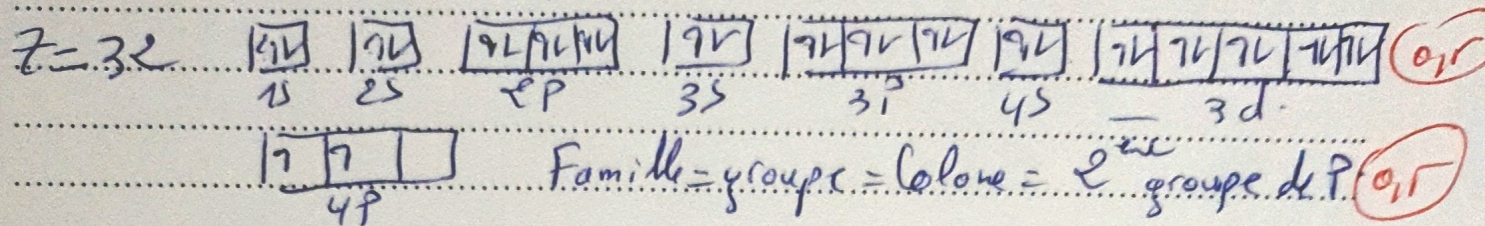 Z=32 1S 2S 2P 3S 3P 4S 3d 0,5
4P Famille=groupe=Colone= 2ème groupe de P. 0,5